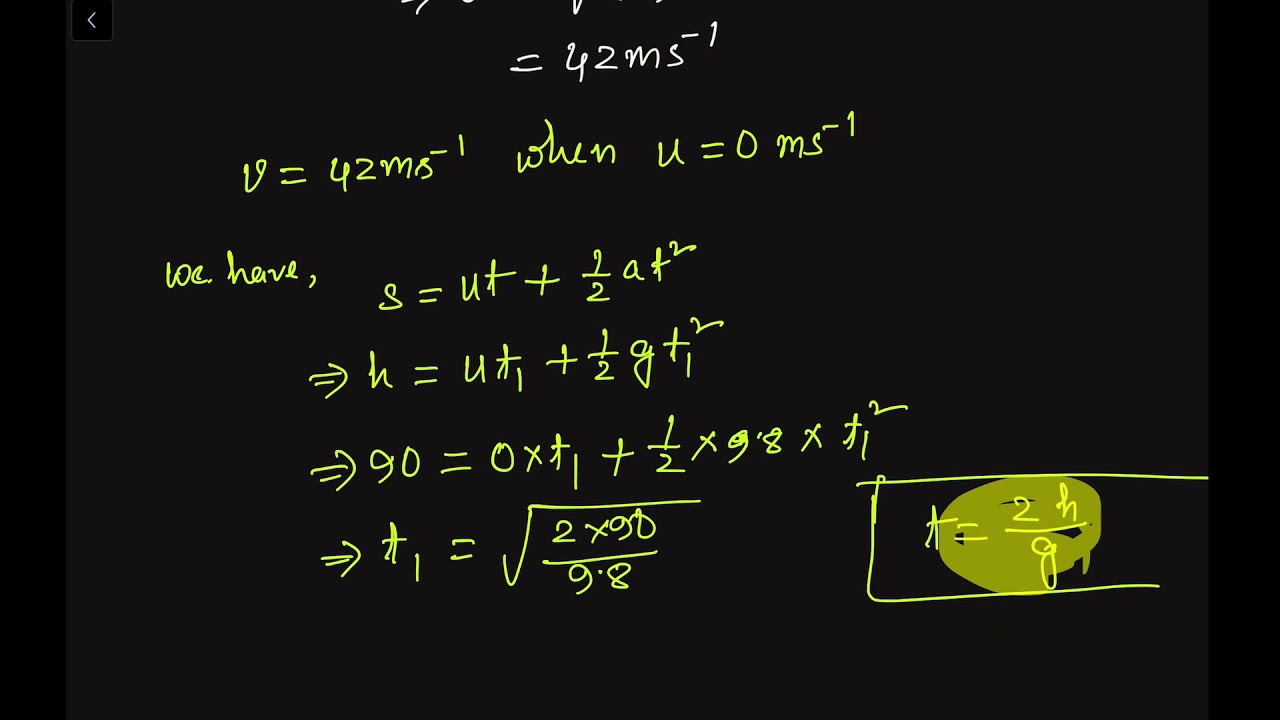 = 42 ms⁻¹
v = 42 ms⁻¹ when u = 0 ms⁻¹
we have, s = ut + 1/2 at²
⇒ h = ut₁ + 1/2 gt₁²
⇒ 90 = 0×t₁ + 1/2 × 9.8 × t₁²
⇒ t₁ = √(2×90/9.8)
t = 2h/g